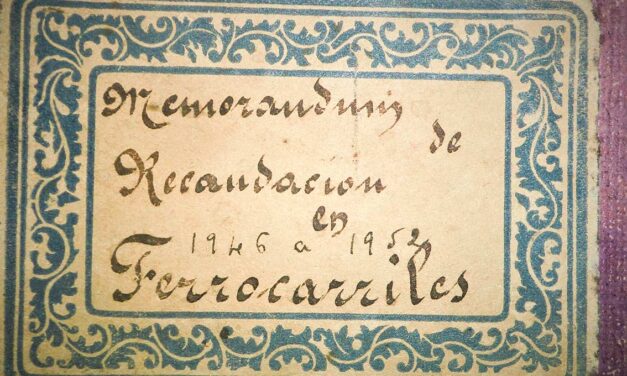 Memorandum
de
Recaudacion
en
1946 a 1952
Ferrocarriles